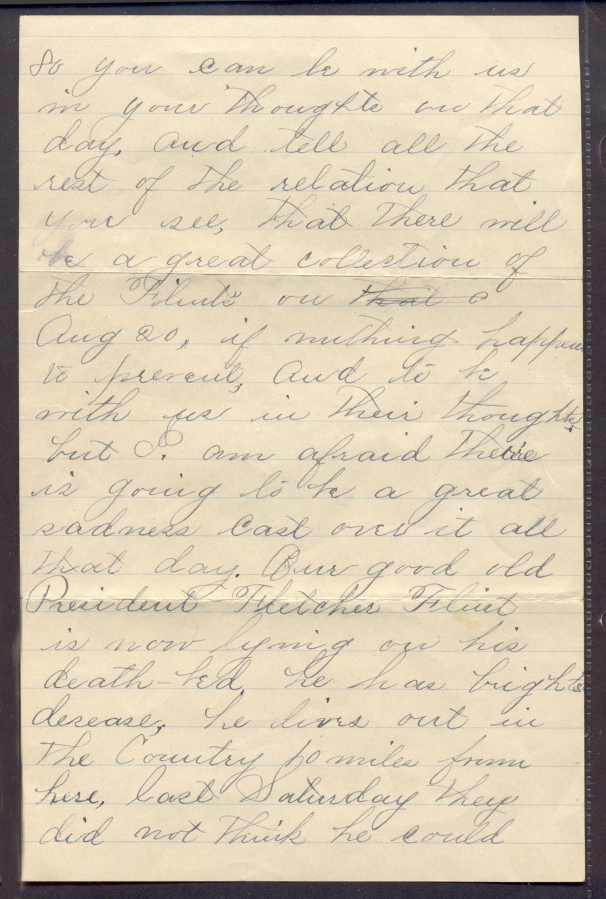 So you can be with us
in your thoughts on that
day, and tell all the
rest of the relation that
you see, that there will
be a great collection of
the Flints on that
Aug 20, if nuthing happens
to prevent, and to be
with us in their thoughts.
but I. am afraid there
is going to be a great
sadness cast over it all
that day. Our good old
President Fletcher Flint
is now lying on his
death-bed, he has brights
desease, he lives out in
the Country 10 miles from
here, last Saturday they
did not think he could